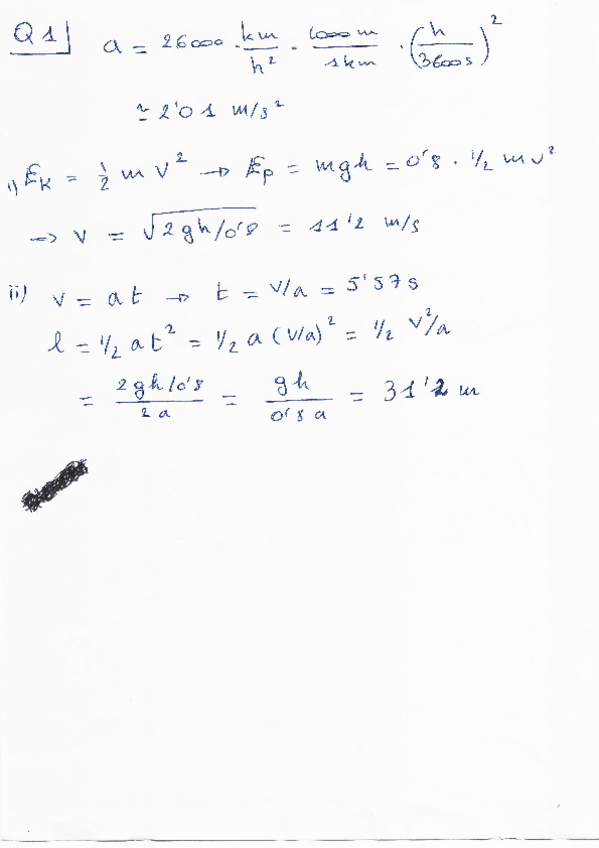 Q1 a = 26000 · km/h² · 1000 m/1 km · (h/3600 s)²
≃ 2'01 m/s²
i) E_K = 1/2 m v² → E_p = mgh = 0'8 · 1/2 m v²
→ v = √(2gh/0'8) = 11'2 m/s
ii) v = at → t = v/a = 5'57 s
l = 1/2 at² = 1/2 a (v/a)² = 1/2 v²/a
= (2gh/0'8)/(2a) = gh/(0'8 a) = 31'2 m